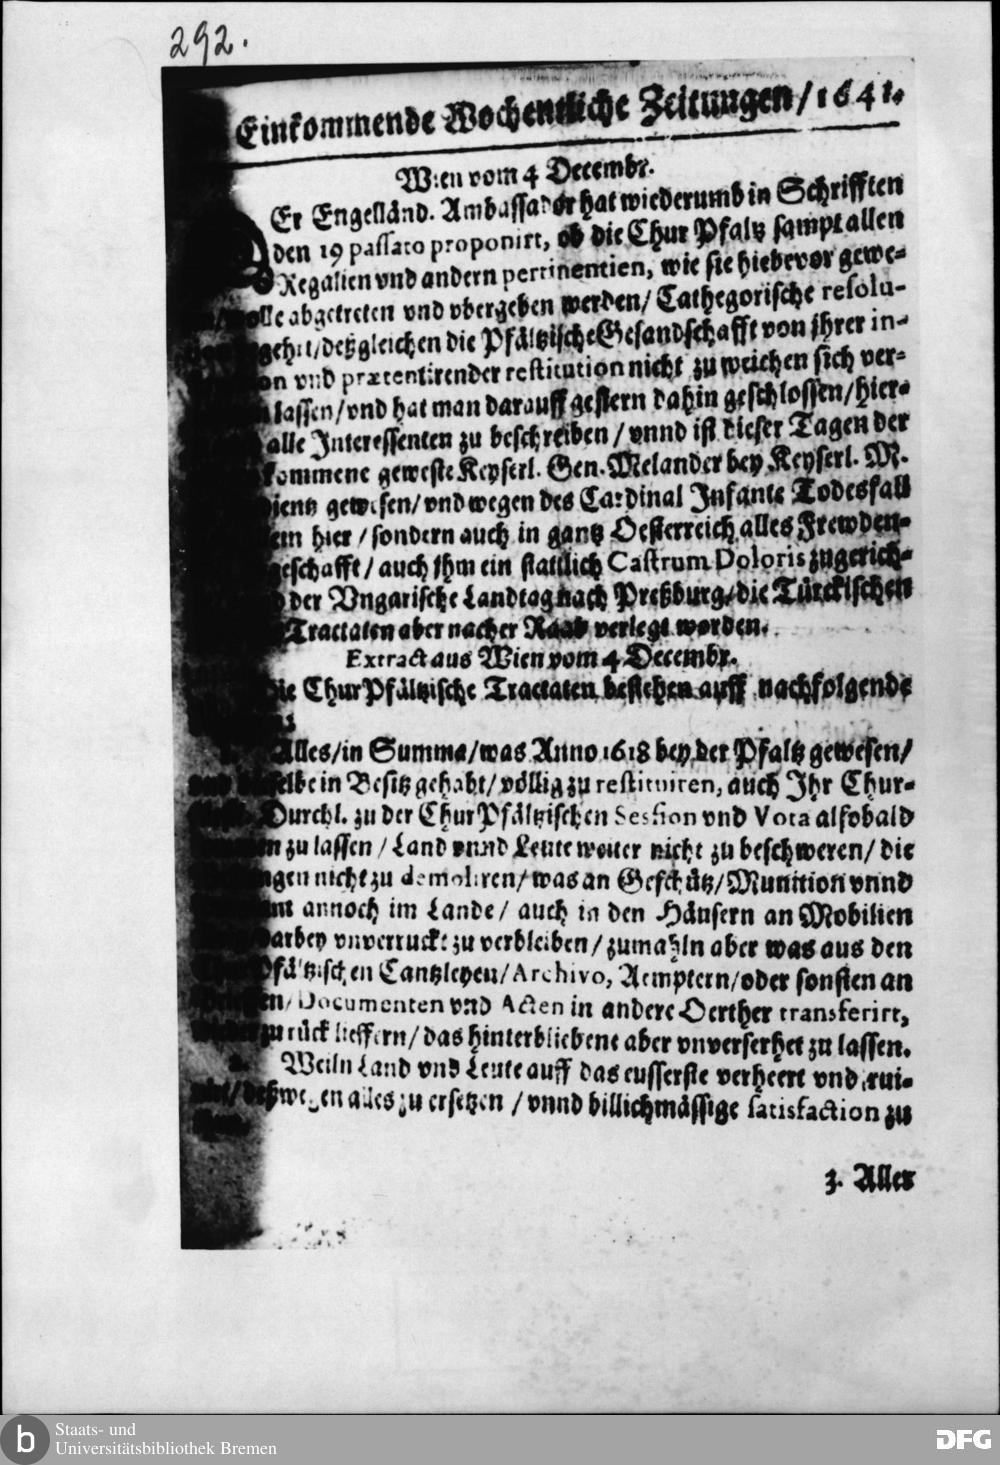 292.
Einkommende Wochentliche Zeitungen/1641.
Wien vom 4 Decembr.
DEr Engelländ. Ambassador hat wiederumb in Schrifften
den 19 passato proponirt, ob die Chur Pfaltz sampt allen
Regalien vnd andern pertinentien, wie sie hiebevor gewe-
wolle abgetreten vnd vbergeben werden/ Cathegorische resolu-
gehrt/deßgleichen die Pfältzische Gesandschafft von jhrer in-
on vnd prætentirender restitution nicht zu weichen sich ver-
lassen/vnd hat man darauff gestern dahin geschlossen/hier-
alle Interessenten zu beschreiben/vnnd ist dieser Tagen der
kommene geweste Keyserl. Gen. Melander bey Keyserl. M.
dientz gewesen/vnd wegen des Cardinal Infante Todesfall
lein hier/sondern auch in gantz Oesterreich alles Frewden-
geschafft/auch jhm ein stattlich Castrum Doloris zugerich-
der Vngarische Landtag nach Preßburg/die Türckischen
Tractaten aber nacher Raab verlegt worden.
Extract aus Wien vom 4 Decembr.
Die ChurPfältzische Tractaten bestehen auff nachfolgende
1. Alles/in Summa/was Anno 1618 bey der Pfaltz gewesen/
vnd dieselbe in Besitz gehabt/völlig zu restituiren, auch Ihr Chur-
Durchl. zu der ChurPfältzischen Session vnd Vota alsobald
zu lassen/Land vnnd Leute weiter nicht zu beschweren/die
ngen nicht zu demoliren/was an Geschütz/Munition vnnd
annoch im Lande/auch in den Häusern an Mobilien
darbey vnverruckt zu verbleiben/zumahln aber was aus den
ChurPfältzischen Cantzleyen/Archivo, Aemptern/oder sonsten an
Brieffen/Documenten vnd Acten in andere Oerther transferirt,
wieder zu rück lieffern/das hinterbliebene aber vnversehret zu lassen.
2. Weiln Land vnd Leute auff das eusserste verheert vnd rui-
nirt/deßwegen alles zu ersetzen/vnnd billichmässige satisfaction zu
3. Aller
b
Staats- und
Universitätsbibliothek Bremen
DFG